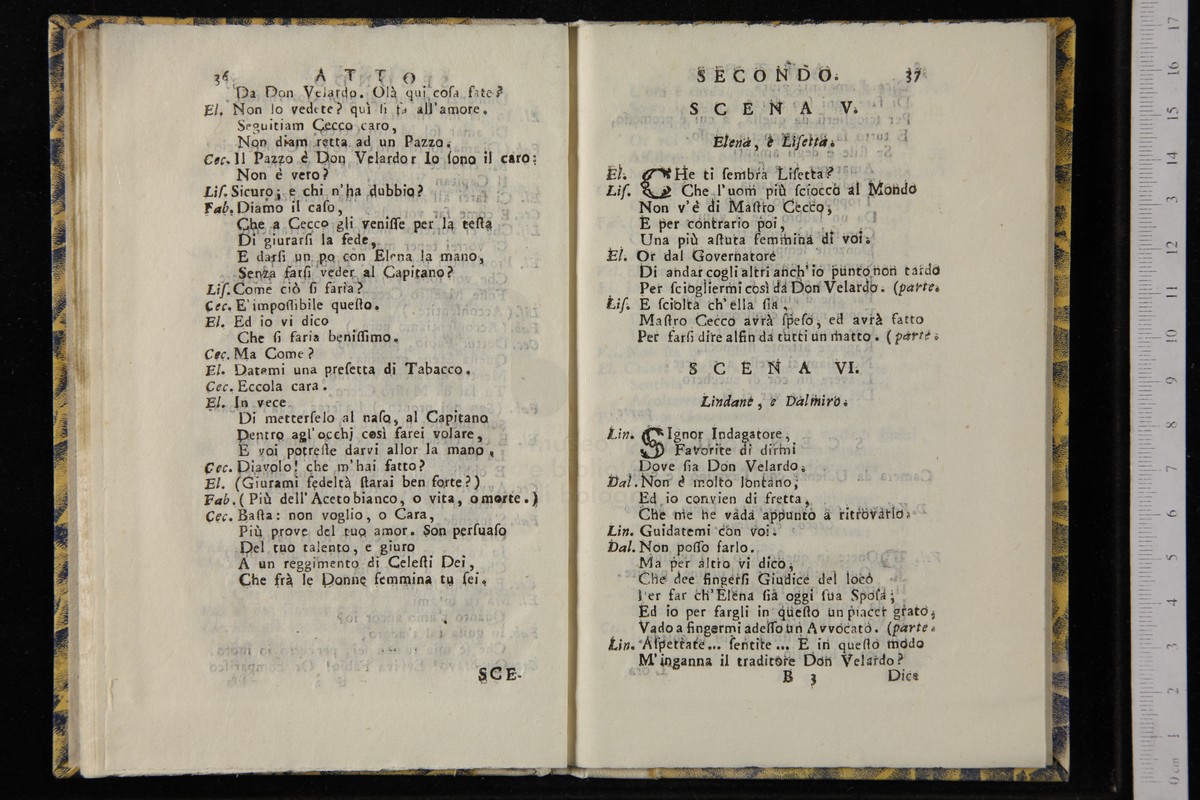 36 ATTO
Da Don Velardo. Olà qui cosa fate?
El. Non lo vedete? quì si fa all'amore.
Seguitiam Cecco caro,
Non diam retta ad un Pazzo.
Cec. Il Pazzo è Don Velardo: Io sono il caro:
Non è vero?
Lis. Sicuro; e chi n'ha dubbio?
Fab. Diamo il caso,
Che a Cecco gli venisse per la testa
Di giurarsi la fede,
E darsi un po con Elena la mano,
Senza farsi veder al Capitano?
Lis. Come ciò si faria?
Cec. E' impossibile questo.
El. Ed io vi dico
Che si faria benissimo.
Cec. Ma Come?
El. Datemi una presetta di Tabacco.
Cec. Eccola cara.
El. In vece
Di metterselo al naso, al Capitano
Dentro agl'occhj così farei volare,
E voi potreste darvi allor la mano.
Cec. Diavolo! che m'hai fatto?
El. (Giurami fedeltà starai ben forte?)
Fab. (Più dell'Aceto bianco, o vita, o morte.)
Cec. Basta: non voglio, o Cara,
Più prove del tuo amor. Son persuaso
Del tuo talento, e giuro
A un reggimento di Celesti Dei,
Che frà le Donne femmina tu sei.
SCE-
SECONDO. 37
SCENA V.
Elena, e Lisetta.
El. CHe ti sembra Lisetta?
Lis. Che l'uom più sciocco al Mondo
Non v'è di Mastro Cecco,
E per contrario poi,
Una più astuta femmina di voi.
El. Or dal Governatore
Di andar cogli altri anch'io punto non tardo
Per sciogliermi così da Don Velardo. (parte.
Lis. E sciolta ch'ella sia,
Mastro Cecco avrà speso, ed avrà fatto
Per farsi dire alfin da tutti un matto. (parte.
SCENA VI.
Lindane, e Dalmiro.
Lin. SIgnor Indagatore,
Favorite di dirmi
Dove sia Don Velardo.
Dal. Non è molto lontano,
Ed io convien di fretta,
Che me ne vada appunto a ritrovarlo.
Lin. Guidatemi con voi.
Dal. Non posso farlo.
Ma per altro vi dico,
Che dee fingersi Giudice del loco
Per far ch'Elena sia oggi sua Sposa;
Ed io per fargli in questo un piacer grato,
Vado a fingermi adesso un Avvocato. (parte.
Lin. Aspettate... sentite... E in questo modo
M'inganna il traditore Don Velardo?
B 3 Dice